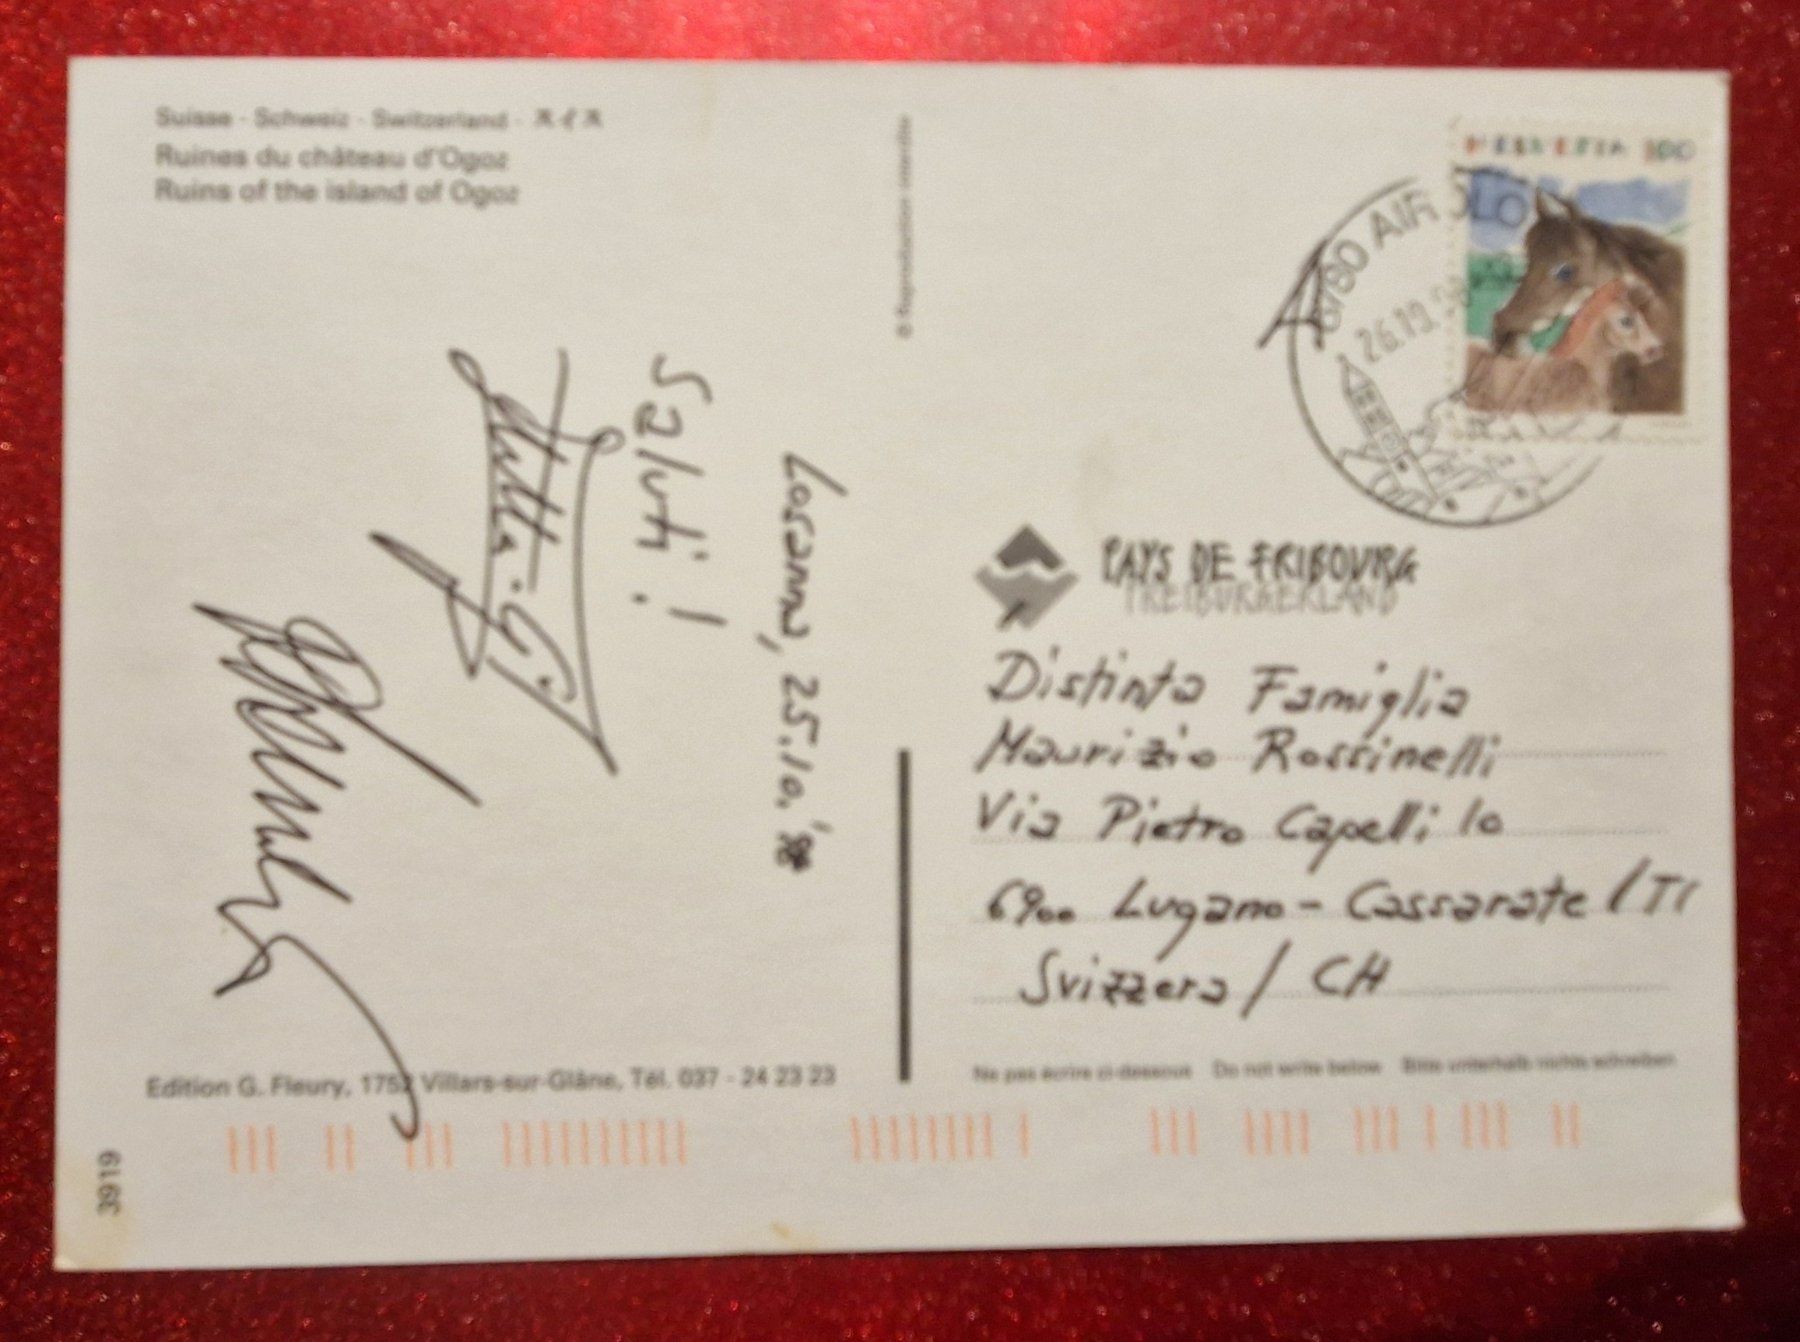 Suisse - Schweiz - Switzerland - スイス
Ruines du château d'Ogoz
Ruins of the island of Ogoz
© Reproduction interdite
HELVETIA 100
AIR
26.10.9
Losanna, 25.10.'98
Saluti!
PAYS DE FRIBOURG
FREIBURGERLAND
Distinta Famiglia
Maurizio Rossinelli
Via Pietro Capelli 10
6900 Lugano - Cassarate / TI
Svizzera / CH
Edition G. Fleury, 1752 Villars-sur-Glâne, Tél. 037 - 24 23 23
Ne pas écrire ci-dessous Do not write below Bitte unterhalb nichts schreiben
3919